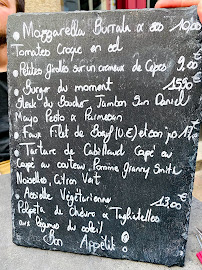 • Mozzarella Burrata 10,00
Tomates Croque en sel
• Petites girolles sur un crémeux de Cèpes 9.00
• Burger du moment 15,90
Steak du Boucher Jambon San Daniel
Mayo Pesto & Parmesan
• Faux Filet de Bœuf (U.E) et son jus 17
• Tartare de Cabillaud Coupé au
Coupé au couteau, Pomme Granny Smith
Noisettes, Citron Vert
• Assiette Végétarienne 13,00
Polpeta de Chèvre & Tagliatelles
aux légumes du soleil
Bon Appétit